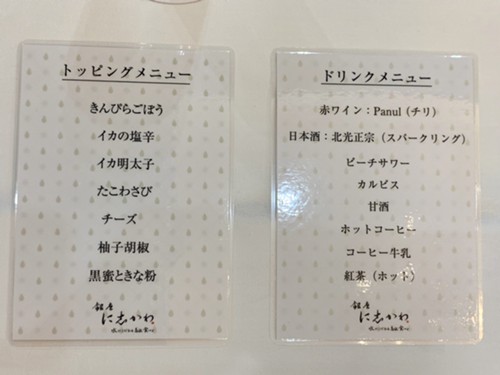 トッピングメニュー
きんぴらごぼう
イカの塩辛
イカ明太子
たこわさび
チーズ
柚子胡椒
黒蜜ときな粉
銀座
に志かわ
ドリンクメニュー
赤ワイン：Panul（チリ）
日本酒：北光正宗（スパークリング）
ピーチサワー
カルピス
甘酒
ホットコーヒー
コーヒー牛乳
紅茶（ホット）
銀座
に志かわ